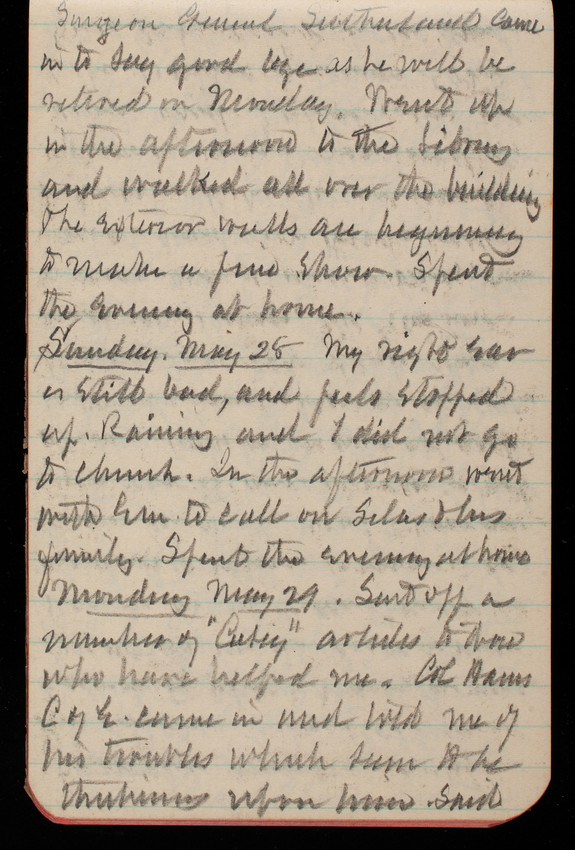 Surgeon General Sutherland came
in to say good bye as he will be
retired on Monday. Went up
in the afternoon to the Library
and walked all over the building
The exterior walls are beginning
to make a fine show. Spent
the evening at home.
Sunday. May 28 My right ear
is still bad, and feels stopped
up. Raining and I did not go
to church. In the afternoon went
with Em to call on Silas & his
family. Spent the evening at home
Monday May 29. Sent off a
number of "Cubic" articles to those
who have helped me. Col Hains
C of E. came in and told me of
his troubles which seem to be
thickening upon him. Said